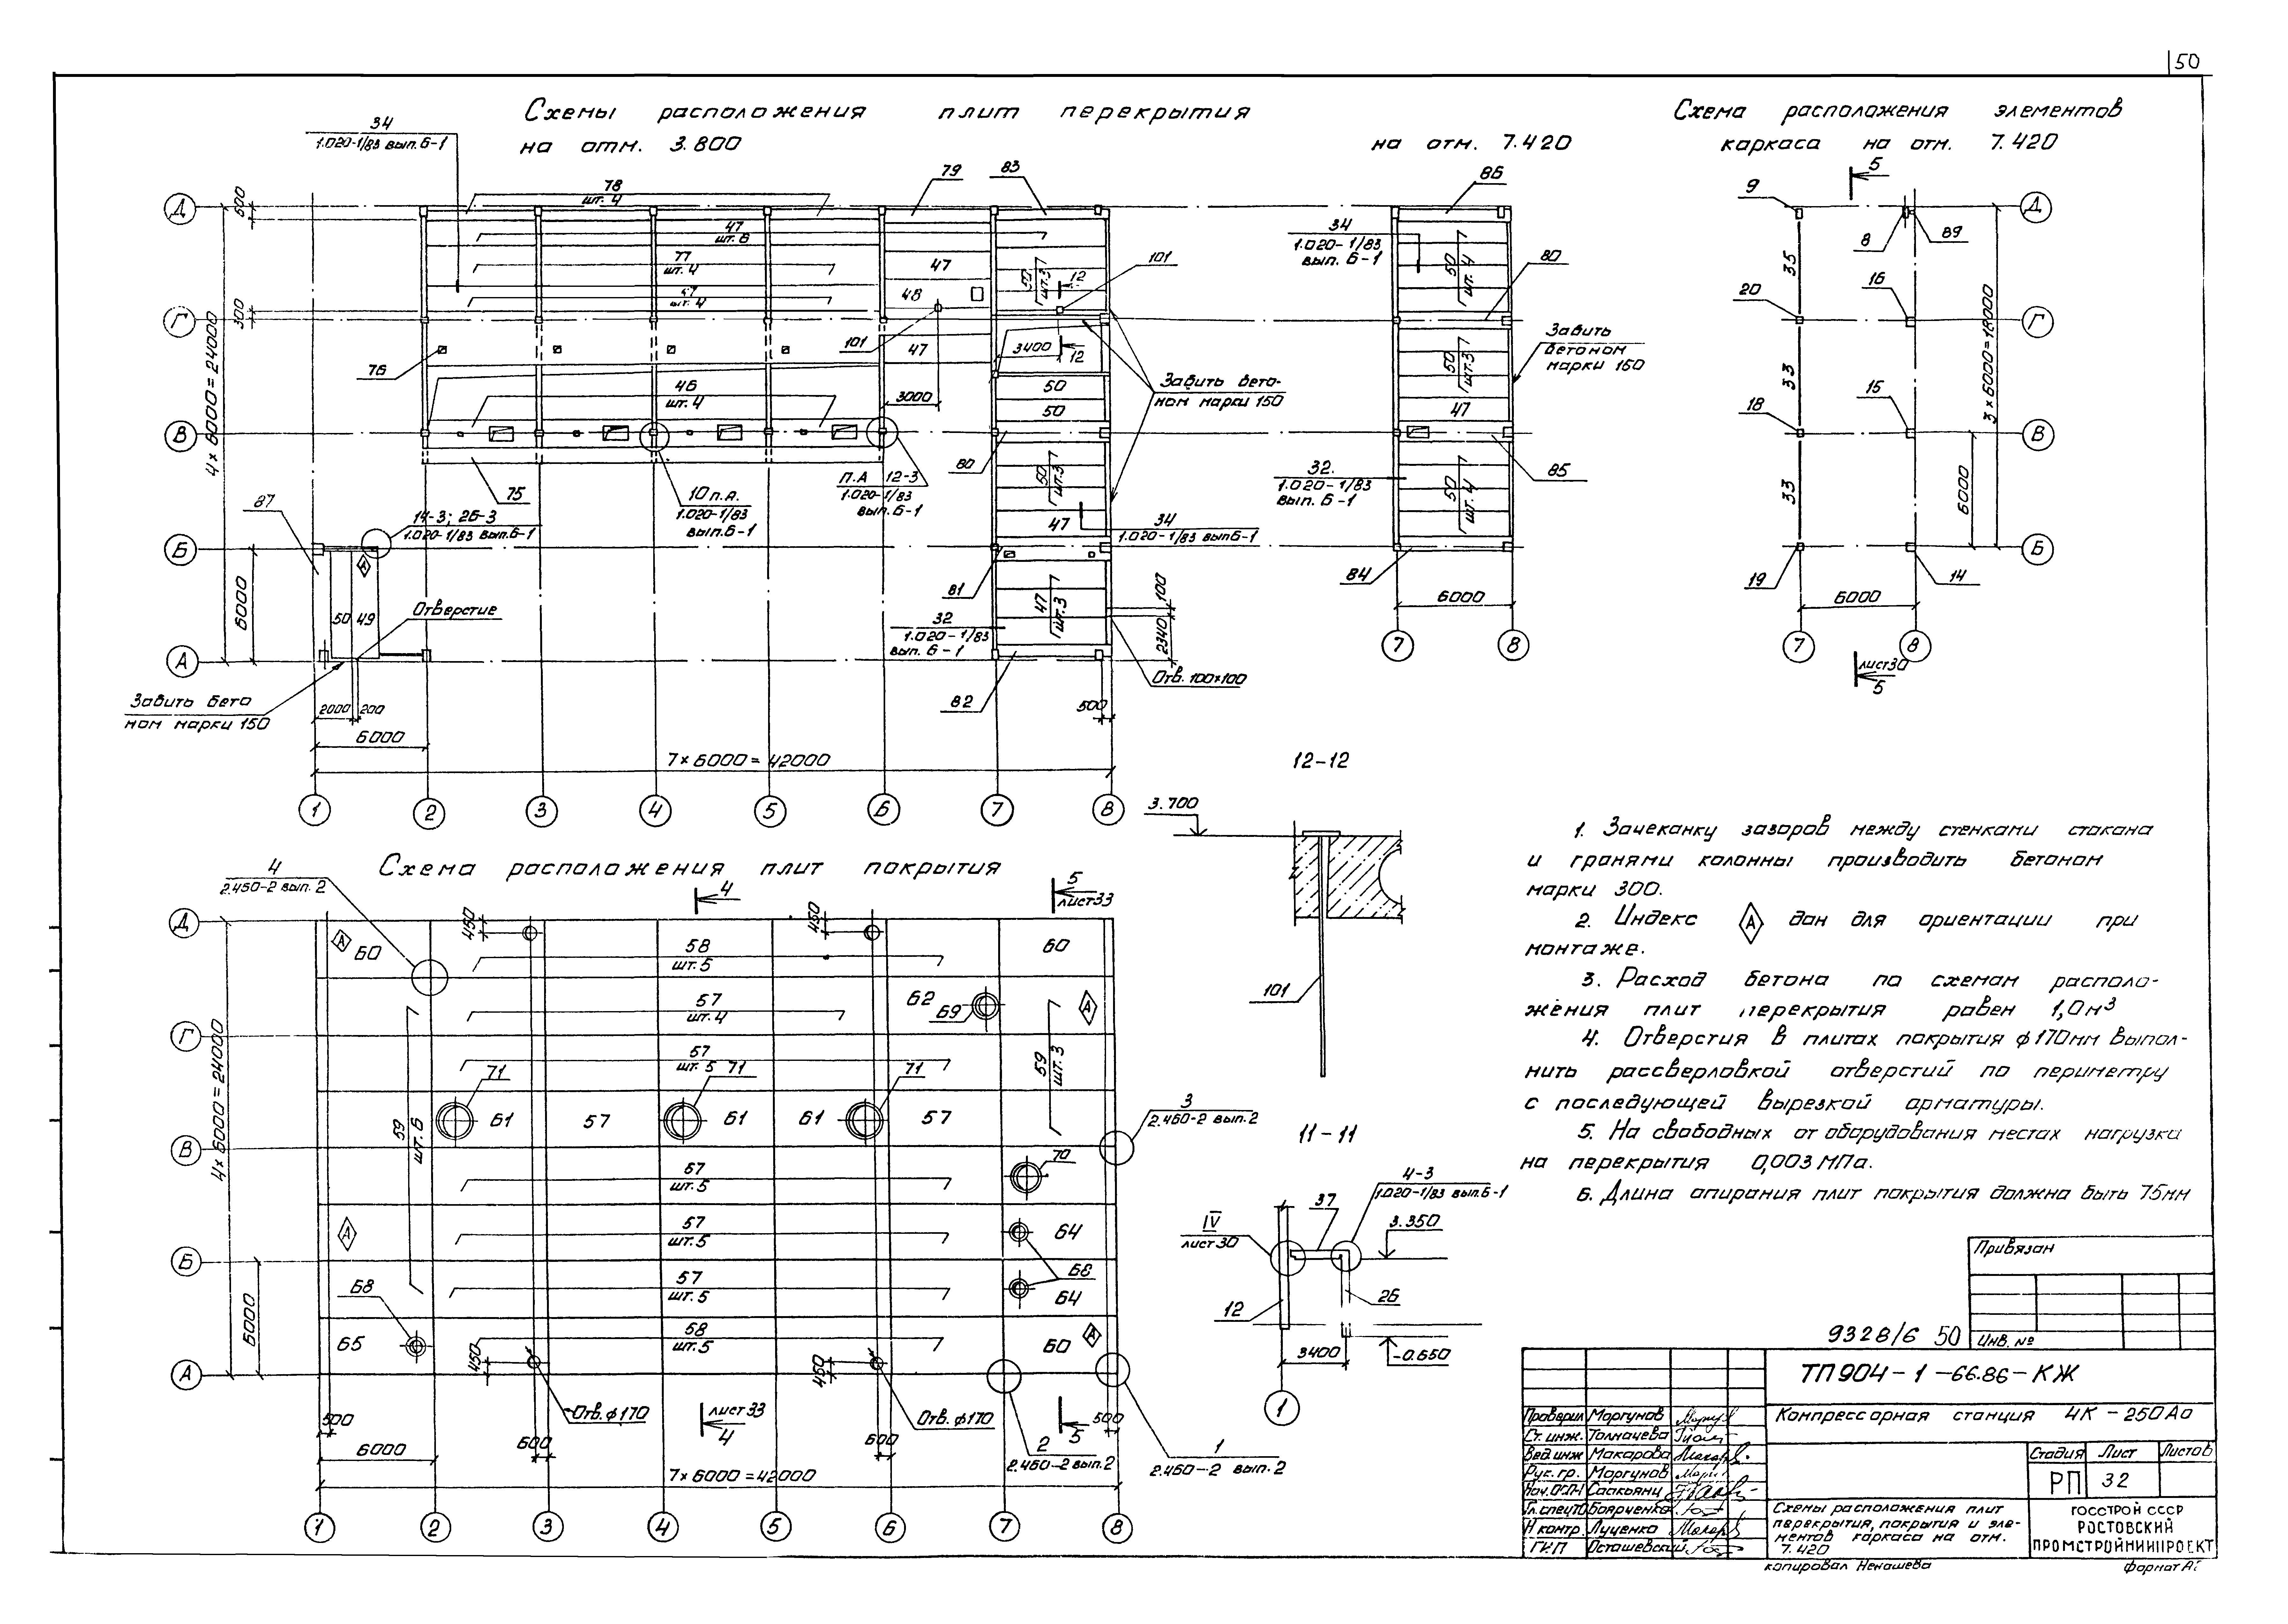 50
Схемы расположения плит перекрытия
на отм. 3.800
на отм. 7.420
Схема расположения элементов
каркаса на отм. 7.420
34
1.020-1/83 вып.6-1
78
шт. 4
79
83
47
шт. 6
77
шт. 4
47
шт. 4
47
48
47
50
шт.3
12
12
101
101
3400
3000
76
46
шт. 4
50
50
80
50
шт.3
47
34
1.020-1/83 вып6-1
81
47
шт.3
32
1.020-1/83
вып. 6-1
82
75
10 п.А.
1.020-1/83
вып.6-1
П.А 12-3
1.020-1/83
вып.6-1
14-3; 26-3
1.020-1/83 вып.6-1
87
А
50
49
Отверстие
Забить бето
ном марки 150
Забить бето-
ном марки 150
Отв. 100×100
100
2340
500
2000
200
6000
7×6000=42000
600
300
4×6000=24000
6000
Д
Г
В
Б
А
1
2
3
4
5
6
7
8
86
34
1.020-1/83
вып. 6-1
50
шт. 4
80
Забить
бетоном
марки 150
50
шт.3
47
85
32.
1.020-1/83
вып. 6-1
50
шт. 4
84
6000
7
8
5
9
8
89
35
20
16
33
18
15
33
19
14
6000
3×6000=18000
6000
Д
Г
В
Б
7
8
лист30
5
12-12
3.700
101
11-11
4-3
1.020-1/83 вып.6-1
37
IV
лист30
3.350
12
26
3400
-0.650
1
Схема расположения плит покрытия
4
2.460-2 вып. 2
4
5
лист33
А
60
450
450
58
шт. 5
60
57
шт. 4
62
69
А
59
шт. 6
57
шт. 5
59
шт. 3
71
71
71
61
57
61
61
57
3
2.460-2 вып.2
57
шт. 5
70
А
57
шт. 5
64
68
57
шт. 5
64
68
65
58
шт. 5
60
А
450
450
Отв. ф170
Отв. ф170
лист33
4
5
500
600
600
500
6000
7×6000=42000
2
2.460-2 вып.2
1
2.460-2 вып.2
4×6000=24000
6000
Д
Г
В
Б
А
1
2
3
4
5
6
7
8
1. Зачеканку зазоров между стенками стакана
и гранями колонны производить бетоном
марки 300.
2. Индекс А дан для ориентации при
монтаже.
3. Расход бетона по схемам располо-
жения плит перекрытия равен 1,0м³
4. Отверстия в плитах покрытия ф170мм выпол-
нить рассверловкой отверстий по периметру
с последующей вырезкой арматуры.
5. На свободных от оборудования местах нагрузка
на перекрытия 0,003 МПа.
6. Длина опирания плит покрытия должна быть 75мм
Привязан
Инв. №
9328/6 50
ТП904-1-66.86-КЖ
Компрессорная станция 4К-250Ао
Проверил Моргунов
Ст. инж. Толмачева
Вед. инж Макарова
Рук. гр. Моргунов
Нач. ОСП-1 Саакьянц
Гл. спец ТО Боярченко
Н контр. Луценко
ГИП Осташевский
Стадия Лист Листов
РП 32
Схемы расположения плит
перекрытия, покрытия и эле-
ментов каркаса на отм.
7.420
ГОССТРОЙ СССР
РОСТОВСКИЙ
ПРОМСТРОЙНИИПРОЕКТ
копировал Ненашева
формат